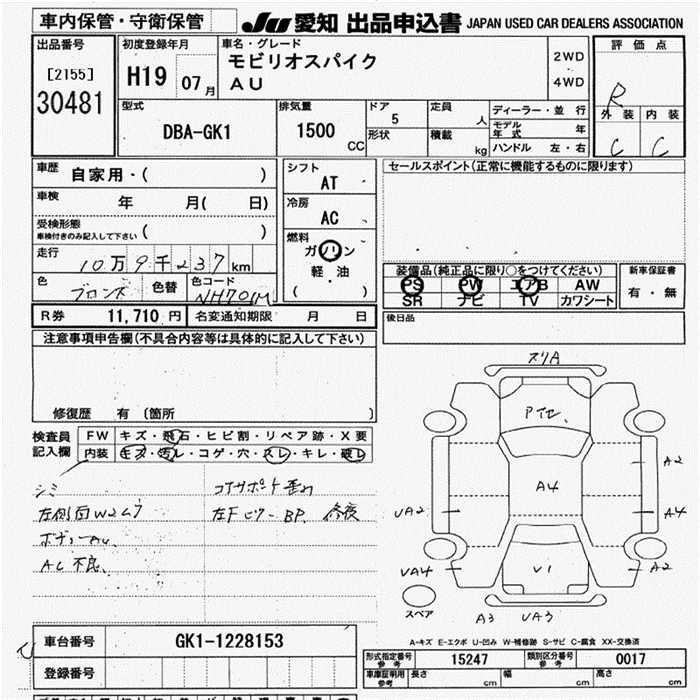 車内保管・守衛保管 JU愛知 出品申込書 JAPAN USED CAR DEALERS ASSOCIATION
出品番号
[2155]
30481
初度登録年月
H19 07月
車名・グレード
モビリオスパイク
AU
2WD
4WD
評価点
R
外装 内装
C C
型式
DBA-GK1
排気量
1500
CC
ドア
5
形状
定員
人
積載
kg
ディーラー・並行
モデル年式 年
ハンドル 左・右
車歴
自家用・( )
車検
年 月( 日)
受検形態
車検付きのみ記入して下さい ( )
走行
10万9千237km
色
ブロンズ
色替
色コード
NH701M
シフト
AT
冷房
AC
燃料
ガソリン・
軽・油
( )
セールスポイント(正常に機能するものに限ります)
装備品(純正品に限り○をつけてください)
PS PW エアB AW
SR ナビ TV カワシート
新車保証書
有・無
後日品
R券 11,710円 名変通知期限 月 日
注意事項申告欄(不具合内容等は具体的に記入して下さい)
修復歴 有〔箇所 〕
検査員記入欄
FW キズ・飛石・ヒビ割・リペア跡・X要
内装 キズ・汚レ・コゲ・穴・スレ・キレ・破レ
シミ
左側面W2
ボディーAU
AC不良
コアサポート歪
左Fピラー BP、修復
スリA
A4
A2
UA2
A4
VA4
A2
V1
A3 UA3
スペア
A-キズ E-エクボ U-凹み W-補修跡 S-サビ C-腐食 XX-交換済
車台番号 GK1-1228153
登録番号
形式指定番号 参考 15247 類別区分番号 参考 0017
車庫証明用 参考 長さ cm 幅 cm 高さ cm